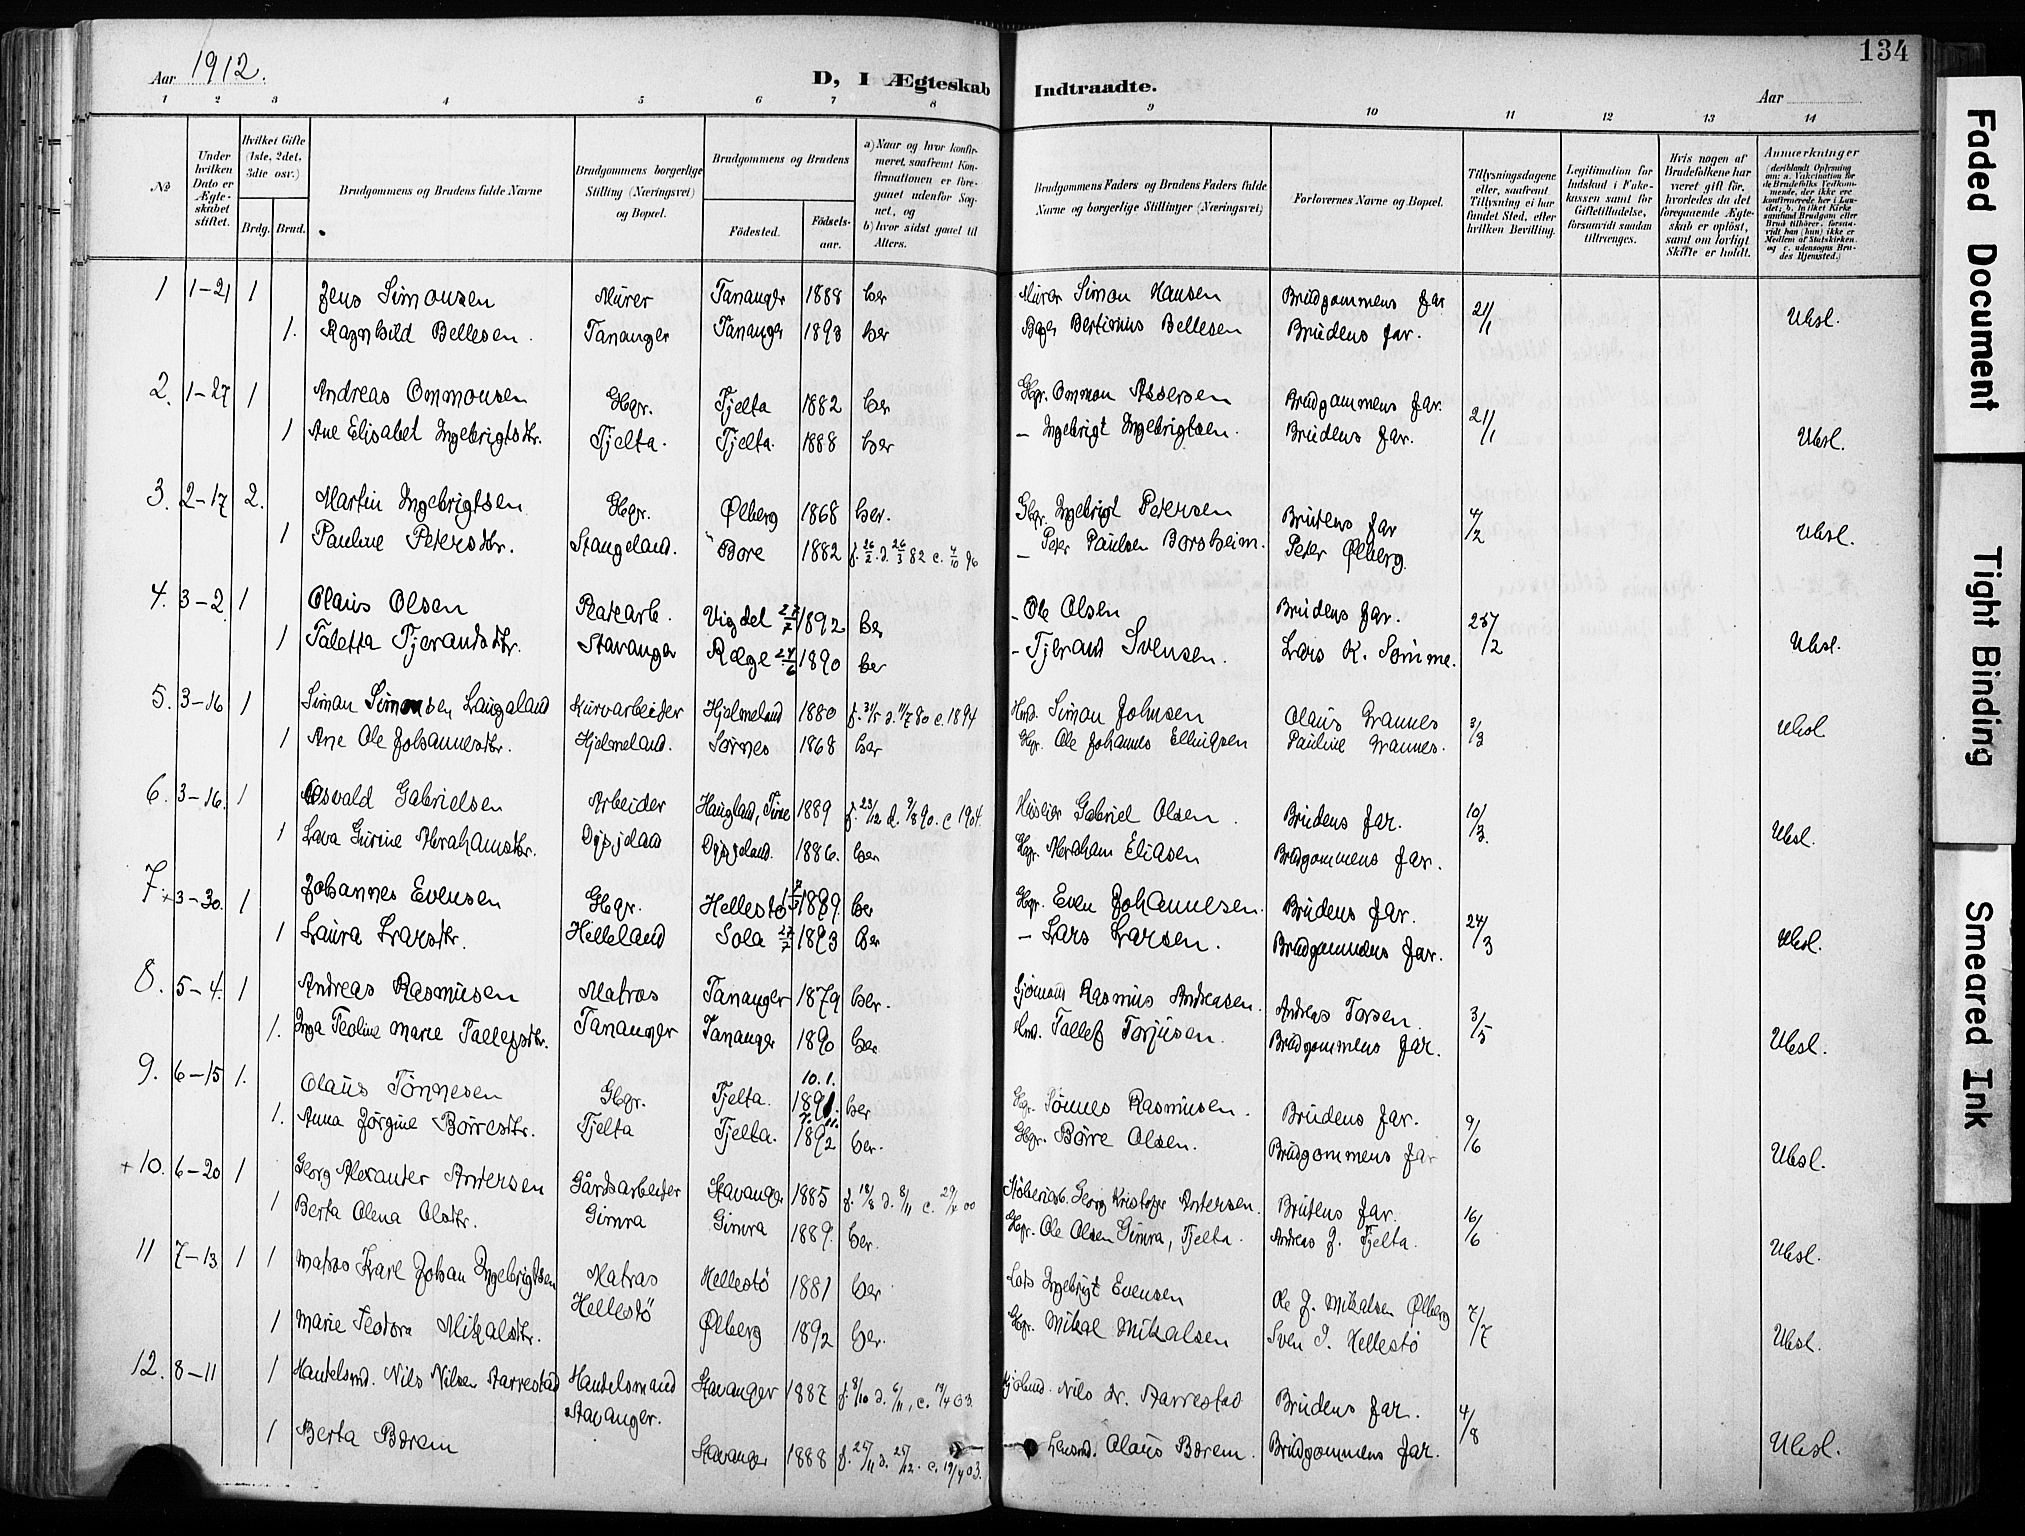 134
Aar 1912.
D, I Ægteskab Indtraadte.
Aar
1 2 3 4 5 6 7 8 9 10 11 12 13 14
No
Under hvilken Dato er Ægteskabet stiftet.
Hvilket Gifte (1ste, 2det, 3die osv.)
Brdg. Brud.
Brudgommens og Brudens fulde Navne
Brudgommens borgerlige Stilling (Næringsvei) og Bopæl.
Brudgommens og Brudens
Fødested.
Fødsels-aar.
a) Naar og hvor konfirmeret, saafremt Konfirmationen er foregaaet udenfor Sognet, og
b) hvor sidst gaaet til Alters.
Brudgommens Faders og Brudens Faders fulde Navne og borgerlige Stillinger (Næringsvei)
Forlovernes Navne og Bopæl.
Tillysningsdagene eller, saafremt Tillysning ei har fundet Sted, efter hvilken Bevilling.
Legitimation for Indskud i Fakekassen samt for Giftetilladelse, forsaavidt saadan tiltrænges.
Hvis nogen af Brudefolkene har været gift før, hvorledes da det foregaaende Ægteskab er opløst, samt om lovligt Skifte er holdt.
Anmærkninger
(deriblandt Oplysning om: a. Vakcination for de Brudefolks Vedkommende, der ikke ere konfirmerede her i Landet; b. hvilket Kirkesamfund Brudgom eller Brud tilhører, forsaavidt han (hun) ikke er Medlem af Statskirken, og c. udensogns Brudes Hjemsted.)
1 1-21 1 Jens Simonsen Murer Tananger 1888 her Murer Simon Hansen Brudgommens far 21/1 Ubesl.
1. Ragnhild Bellesen. Tananger Tananger 1893 her Bertinius Bellesen Brudens far.
2. 1-27 1 Andreas Ommonsen Gbgr. Tjelta 1882 her Gbgr. Ommon Assersen Brudgommens far. 21/1 Ubesl.
1 Ane Elisabet Ingebrigtsdtr. Tjelta. Tjelta. 1888 her – Ingebrigt Ingebrigtsen. Brudens far.
3. 2-17 2. Martin Ingebrigtsen Gbgr. Ølberg 1868 her. Gbgr. Ingebrigt Petersen Brudens far 4/2 Ubesl.
1 Pauline Petersdtr. Stangeland. Bore 1882 f. 26/2. d. 26/3 82 c. 4/10 96 – Peter Paulsen Borsheim. Peter Ølberg.
4. 3-2 1 Olaus Olsen Stavanger Vigdel 27/7 1892 her – Ole Olsen Brudens far. 25/2 Ubesl.
1 Taletta Tjerandsdtr. Ræge 24/6 1890 her – Tjerand Svensen. Lars K. Sømme.
5. 3-16 1 Simon Simonsen Laugaland Kurvarbeider Hjelmeland 1880 f. 31/5 d. 11/7 80 c. 1894 Simon Johnsen Olaus Grannes 3/3 Ubesl
1 Ane Ole Johannesdtr. Hjelmeland. Sørnes 1868 her Gbgr. Ole Johannes Ellingsen Pauline Grannes.
6. 3-16. 1 Osvald Gabrielsen Arbeider Haugland, Time 1889 f. 23/12 d. 9/8 90. c 1904. Husleier Gabriel Olsen. Brudens far. 10/3. Ubesl.
1 Lava Gurine Abrahamsdtr. Dysjeland Dysjeland. 1886. her Gbgr. Abraham Eliasen Brudgommens far.
7. + 3-30. 1 Johannes Evensen Gbgr. Hellestø 1889. her Gbgr. Even Johannesen. Brudens far. 24/3 Ubesl.
1 Laura Larsdtr. Helleland Sola 27/7 1893 her – Lars Larsen. Brudgommens far.
8. 5-4. 1 Andreas Rasmusen Matros Tananger 1879 her. Sjømand Rasmus Andreasen. Andreas Torsen. 3/5 Ubesl.
1. Inga Teoline Marie Tallefsdtr. Tananger Tananger 1890 her. Tallef Torjusen. Brudgommens far.
9. 6-15 1. Olaus Tønnesen Gbgr. Tjelta. 10.1. 1891. her Gbgr. Tønnes Rasmusen. Brudens far. 9/6 Ubesl.
1. Anna Jørgine Børresdtr. Tjelta Tjelta. 1892 her. Gbgr. Børre Olsen. Brudgommens far
+ 10. 6-20 1 Georg Alexander Andersen Gårdsarbeider Stavanger 1885 f. 18/8 d. 8/11 c. 29/4 00 Georg Kristofer Andersen. Brudens far. 16/6 Ubesl.
1 Berta Olena Olsdtr. Gimra Gimra 1889. her. Gbgr. Ole Olsen Gimra, Tjelta. Andreas J. Tjelta.
11 7-13 1 1 Matros Karl Johan Ingebrigtsen Matros Hellestø 1881 her Lods Ingebrigt Evensen Ole J. Mikalsen Ølberg 7/7 Ubesl.
1 Marie Teodora Mikalsdtr. Hellestø Ølberg 1892 her. Gbgr. Mikal Mikalsen Sven I. Hellestø
12. 8-11 1 Handelsmd. Nils Nilsen Aarrestad Handelsmand Stavanger 1887 f. 8/10 d. 6/11, c. 19/4 03. Nils Aarrestad Brudens far. 4/8 Ubesl.
1 Berta Børem Stavanger. Stavanger 1888 f. 25/11 d. 25/12. c. 19/4 03. Lensmd. Olaus Børem. Brudgommens far.
Faded Document
Tight Binding
Smeared Ink